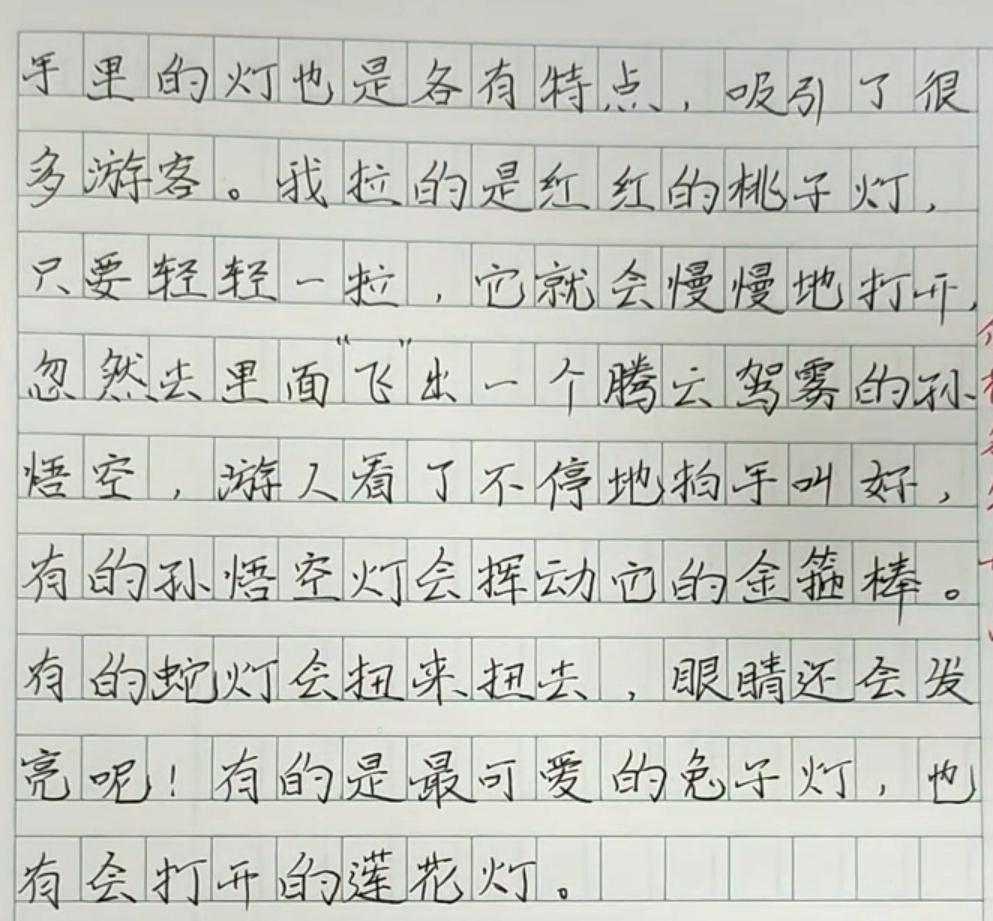 手里的灯也是各有特点，吸引了很
多游客。我拉的是红红的桃子灯，
只要轻轻一拉，它就会慢慢地打开，
忽然去里面“飞”出一个腾云驾雾的孙
悟空，游人看了不停地拍手叫好，
有的孙悟空灯会挥动它的金箍棒。
有的蛇灯会扭来扭去，眼睛还会发
亮呢！有的是最可爱的兔子灯，也
有会打开的莲花灯。